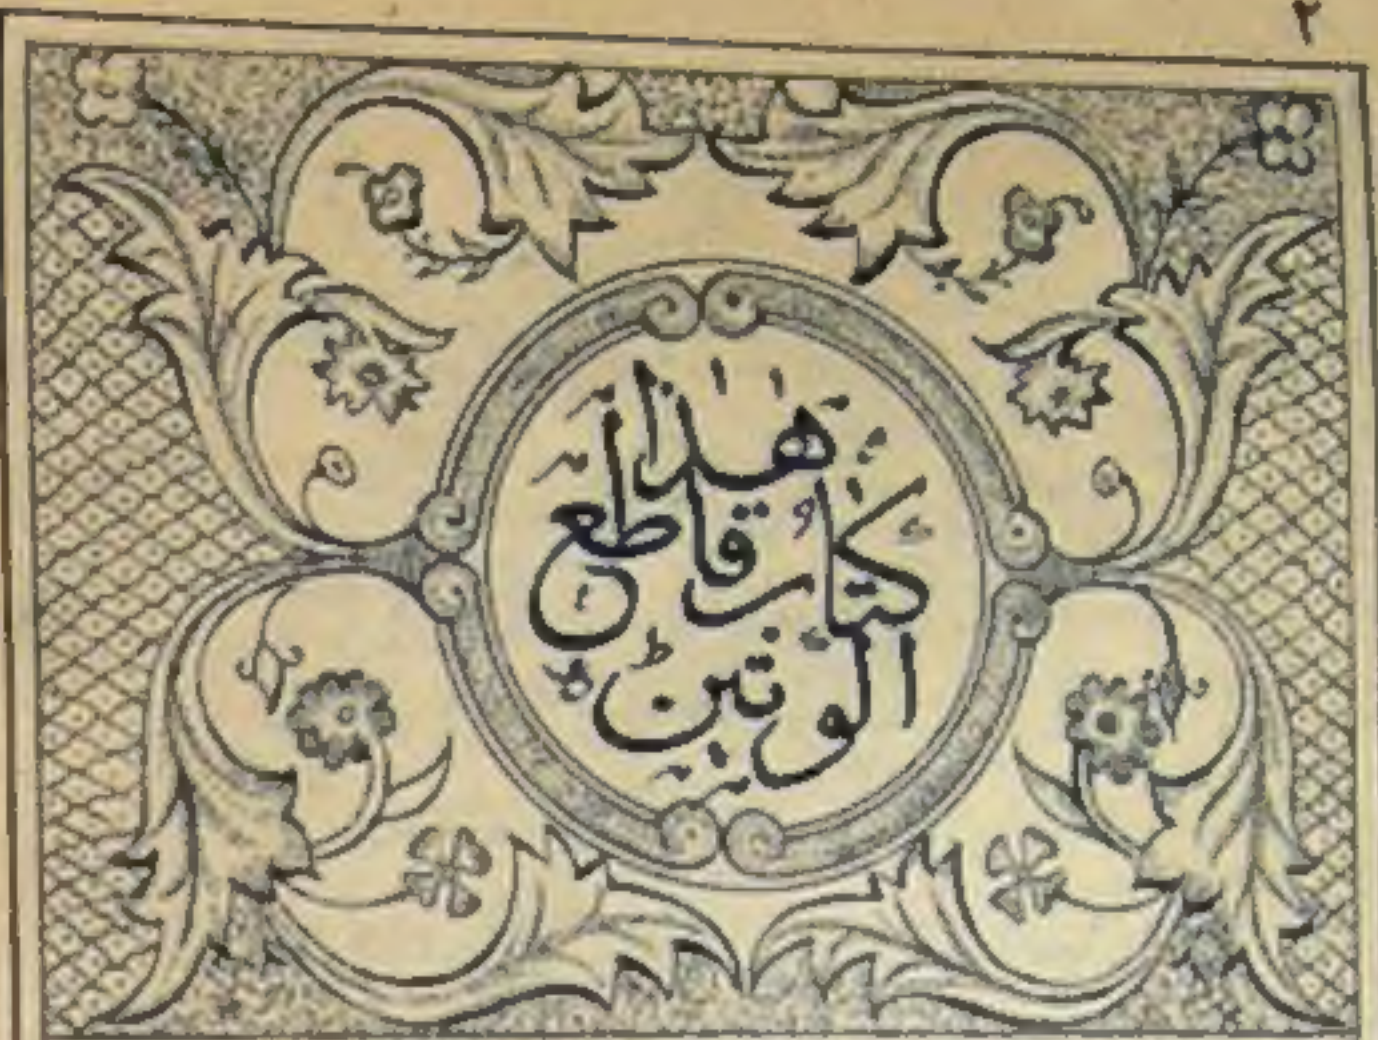 ٢
هذا
كتاب قاطع
الوتين